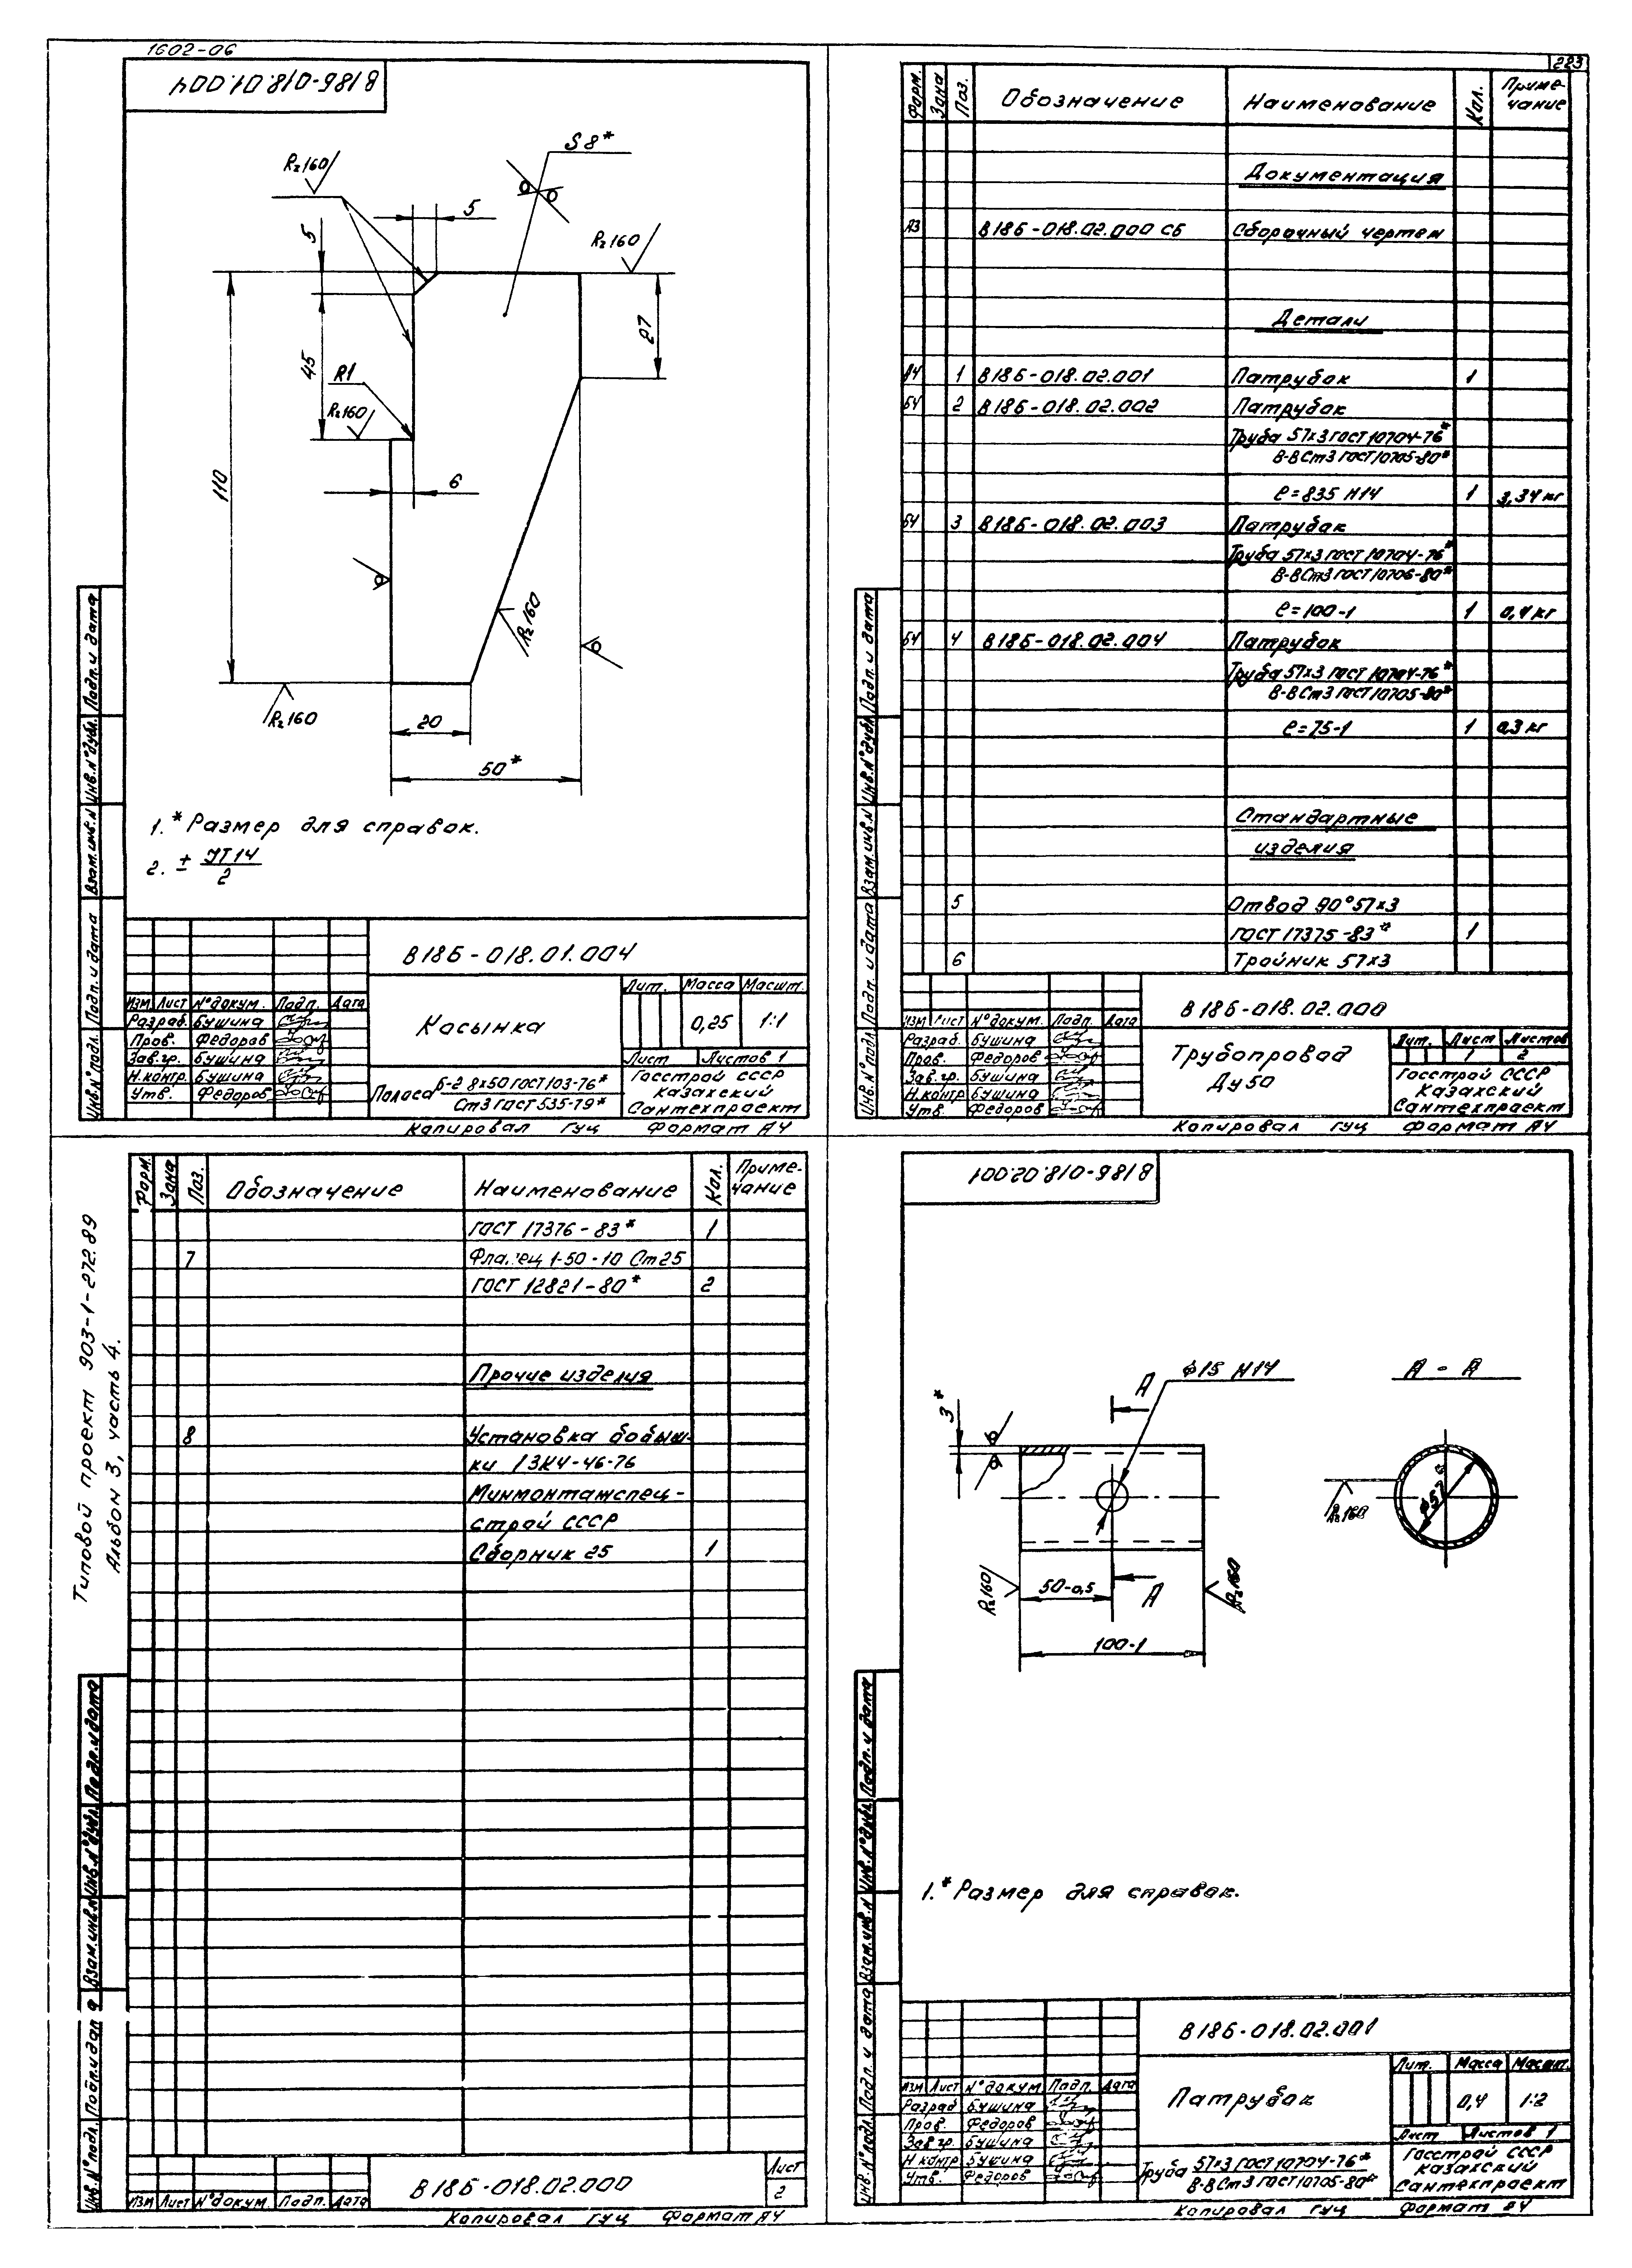 1602-06
223
В18Б-018.01.004
Rz160
S8*
5
5
Rz160
110
45
R1
Rz160
27
6
Rz160
Rz160
20
50*
1.* Размер для справок.
2. ± JT14/2
В18Б-018.01.004
Изм Лист № докум. Подп. Дата
Разраб. Бушина
Пров. Федоров
Зав.гр. Бушина
Н.контр. Бушина
Утв. Федоров
Косынка
Лит. Масса Масшт.
0,25 1:1
Лист Листов 1
Полоса Б-2 8х50 ГОСТ 103-76*
Ст3 ГОСТ 535-79*
Госстрой СССР
Казахский
Сантехпроект
Копировал ГУЦ Формат А4
Инв.№ подл. Подп. и дата Взам.инв.№ Инв.№ дубл. Подп. и дата
Форм. Зона Поз. Обозначение Наименование Кол. Примечание
Документация
А3 В18Б-018.02.000 СБ Сборочный чертеж
Детали
А4 1 В18Б-018.02.001 Патрубок 1
Б4 2 В18Б-018.02.002 Патрубок
Труба 57х3 ГОСТ 10704-76*
В-ВСт3 ГОСТ 10705-80*
ℓ=835 H14 1 3,34 кг
Б4 3 В18Б-018.02.003 Патрубок
Труба 57х3 ГОСТ 10704-76*
В-ВСт3 ГОСТ 10706-80*
ℓ=100-1 1 0,4 кг
Б4 4 В18Б-018.02.004 Патрубок
Труба 57х3 ГОСТ 10704-76*
В-ВСт3 ГОСТ 10705-80*
ℓ=75-1 1 0,3 кг
Стандартные
изделия
5 Отвод 90°57х3
ГОСТ 17375-83* 1
6 Тройник 57х3
В18Б-018.02.000
Изм Лист № докум. Подп. Дата
Разраб. Бушина
Пров. Федоров
Зав.гр. Бушина
Н.контр Бушина
Утв. Федоров
Трубопровод
Ду50
Лит. Лист Листов
1 2
Госстрой СССР
Казахский
Сантехпроект
Копировал ГУЦ Формат А4
Инв.№ подл. Подп. и дата Взам.инв.№ Инв.№ дубл. Подп. и дата
Типовой проект 903-1-272.89
Альбом 3, часть 4.
Форм. Зона Поз. Обозначение Наименование Кол. Примечание
ГОСТ 17376-83* 1
7 Фланец 1-50-10 Ст25
ГОСТ 12821-80* 2
Прочие изделия
8 Установка бобыш-
ки 13К4-46-76
Минмонтажспец-
строй СССР
Сборник 25 1
Изм Лист № докум. Подп. Дата
В18Б-018.02.000
Лист
2
Копировал ГУЦ Формат А4
Инв.№ подл. Подп. и дата Взам.инв.№ Инв.№ дубл. Подп. и дата
В18Б-018.02.001
3*
А
ϕ15 H14
А - А
Rz160
ϕ57*
Rz160
50-0,5
А
Rz160
100-1
1.* Размер для справок.
В18Б-018.02.001
Изм Лист № докум Подп. Дата
Разраб Бушина
Пров. Федоров
Зав гр. Бушина
Н контр Бушина
Утв. Федоров
Патрубок
Лит. Масса Масшт.
0,4 1:2
Лист Листов 1
Труба 57х3 ГОСТ 10704-76*
В-ВСт3 ГОСТ 10705-80*
Госстрой СССР
Казахский
Сантехпроект
Копировал ГУЦ Формат А4
Инв.№ подл. Подп. и дата Взам.инв.№ Инв.№ дубл. Подп. и дата